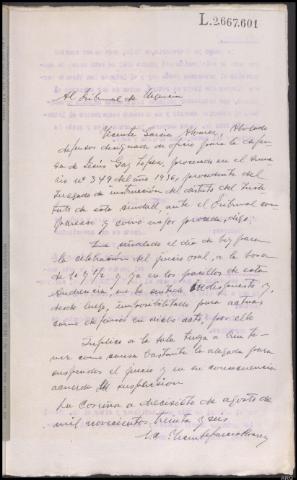 L.2.667.601
Al Tribunal de Urgencia
Vicente García Alvarez, Abogado
defensor designado de oficio para la defen-
sa de Jesús Gay López, procesado en el suma-
rio nº 349 del año 1936, procedente del
Juzgado de instrucción del distrito del Insti-
tuto de esta ciudad, ante el Tribunal com-
parezco y como mejor proceda, digo:
Que señalado el día de hoy para
la celebración del juicio oral, a la hora
de 10 y 1/2 y ya en los pasillos de esta
Audiencia, me he sentido indispuesto y,
desde luego, imposibilitado para actuar
como defensor en dicho acto, por ello
Suplico a la Sala tenga a bien te-
ner como causa bastante la alegada para
suspender el juicio y en su consecuencia
acuerde la suspensión
La Coruña a diecisiete de agosto de
mil novecientos treinta y seis
Vicente García Alvarez